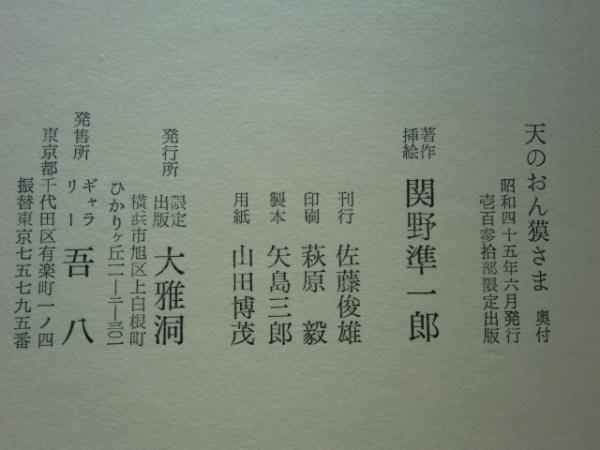 天のおん獏さま 奥付
昭和四十五年六月発行
壱百零拾部限定出版
著作
挿絵 関野準一郎
刊行 佐藤俊雄
印刷 萩原 毅
製本 矢島三郎
用紙 山田博茂
発行所 限定
出版 大雅洞
横浜市旭区上白根町
ひかりヶ丘二一―二―三〇一
発売所 ギャラ
リー 吾八
東京都千代田区有楽町一ノ四
振替東京七五七九五番